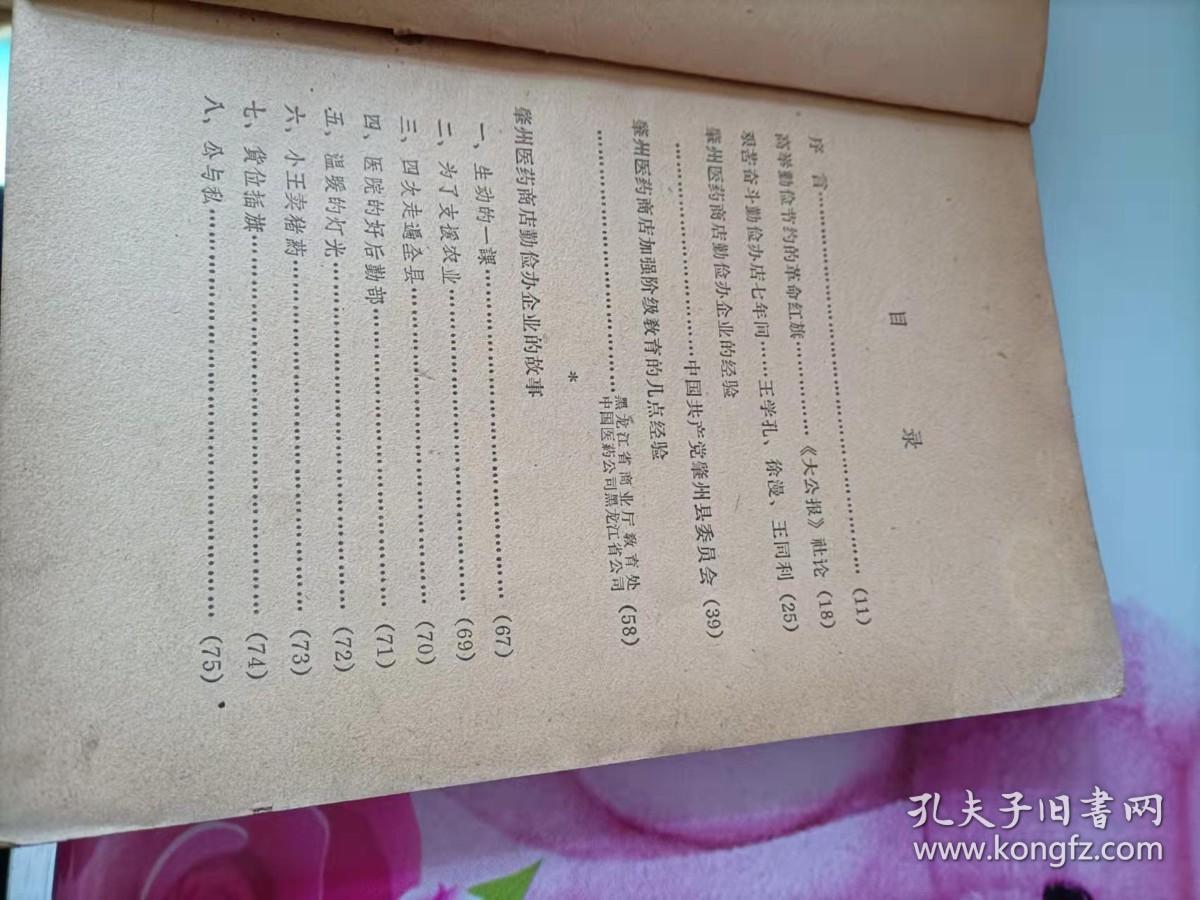 目 录
序言……………………………………(11)
高举勤俭节约的革命红旗…………《大公报》社论 (18)
艰苦奋斗勤俭办店七年间……王学孔、徐漫、王同利 (25)
肇州医药商店勤俭办企业的经验
……………………中国共产党肇州县委员会 (39)
肇州医药商店加强阶级教育的几点经验
……………………黑龙江省商业厅教育处
中国医药公司黑龙江省公司 (58)
*
肇州医药商店勤俭办企业的故事
一、生动的一課……………………………(67)
二、为了支援农业…………………………(69)
三、四次走遍全县…………………………(70)
四、医院的好后勤部………………………(71)
五、温暖的灯光……………………………(72)
六、小王卖猪药……………………………(73)
七、貨位插旗………………………………(74)
八、公与私…………………………………(75)
孔夫子旧書网
www.kongfz.com